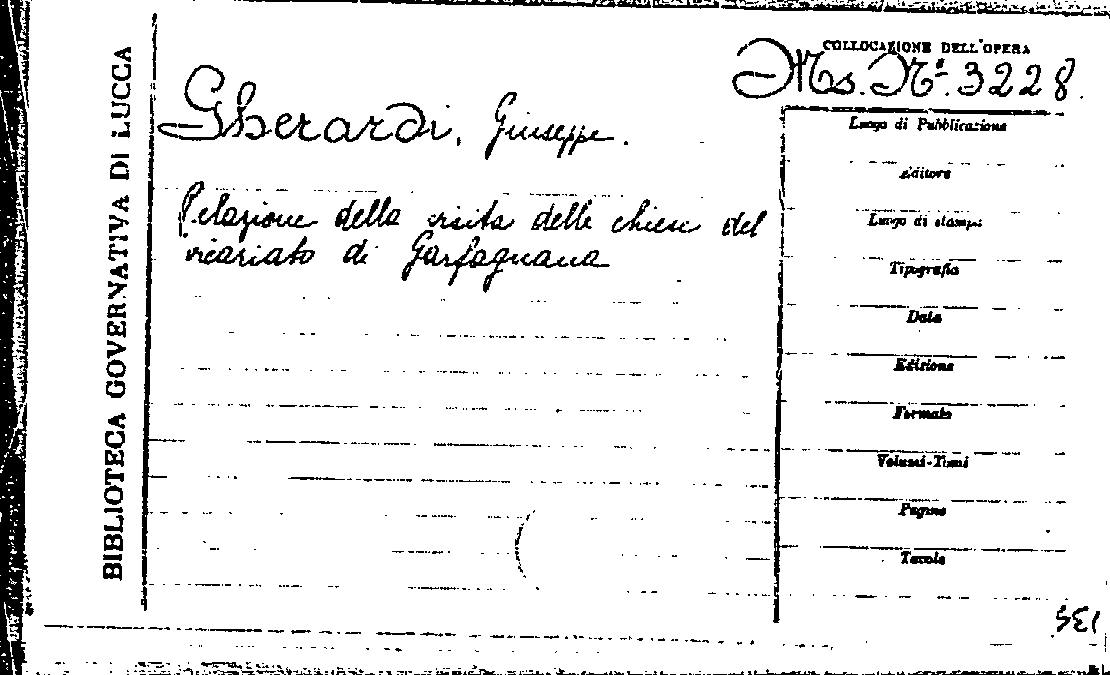 BIBLIOTECA GOVERNATIVA DI LUCCA
COLLOCAZIONE DELL'OPERA
Ms. N.º 3228.
Gherardi, Giuseppe.
Relazione della visita delle chiese del
vicariato di Garfagnana
Luogo di Pubblicazione
Editore
Luogo di stampa
Tipografia
Data
Edizione
Formato
Volumi-Tomi
Pagine
Tavole
135